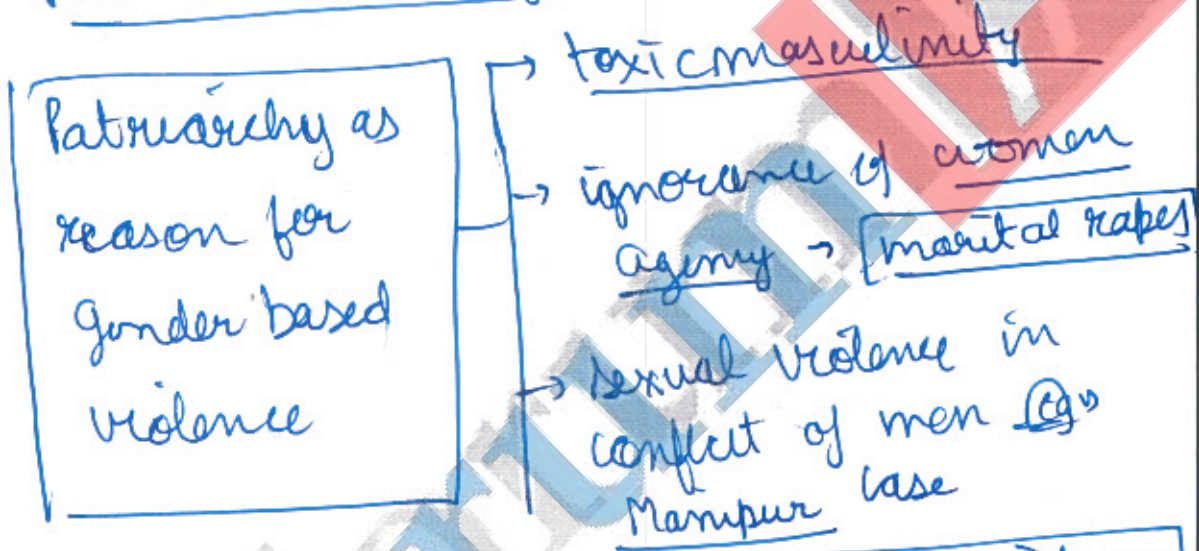 Patriarchy as
reason for
Gender based
violence
→ toxic masculinity
→ ignorance of women
agency → marital rapes
→ sexual violence in
conflict of men eg
Manipur case